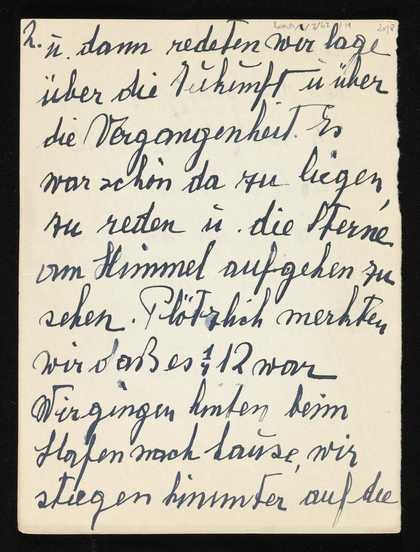 2. u. dann redeten wir lage
über die Zukunft u über
die Vergangenheit. Es
war schön da zu liegen,
zu reden u. die Sterne
am Himmel aufgehen zu
sehen. Plötzlich merkten
wir daß es 1/4 12 war
Wir gingen hinten beim
Hafen nach hause, wir
stiegen hinunter auf die